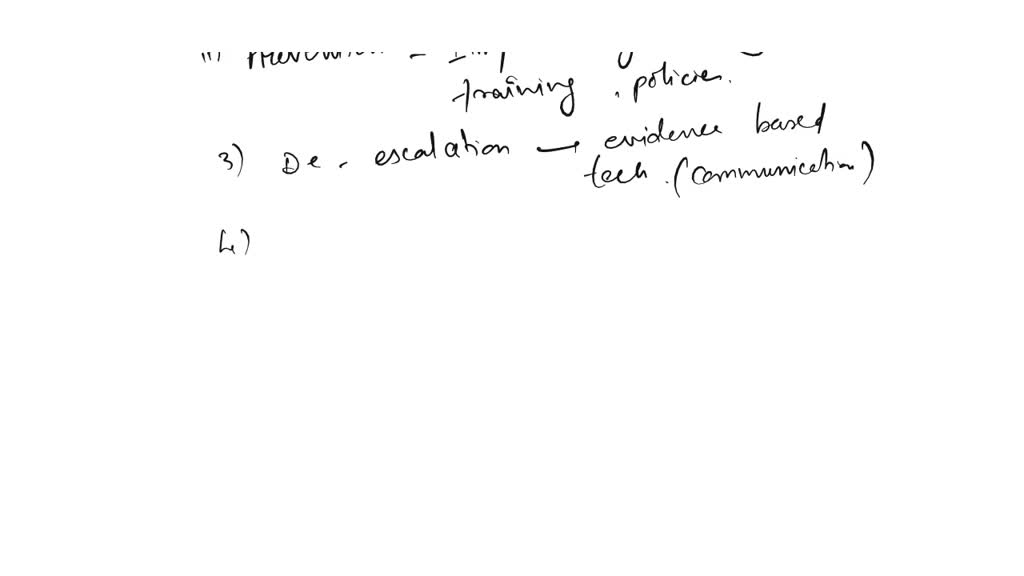 training , policies.
3) De - escalation → evidence based
tech . (communication)
4)